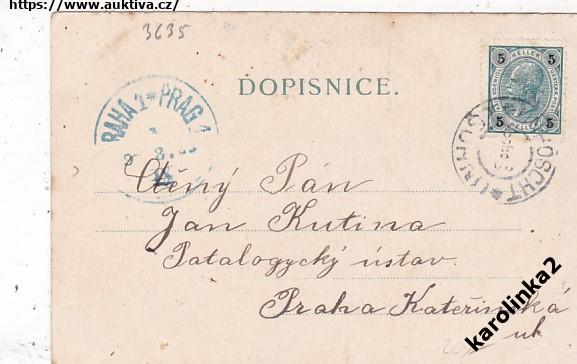 https://www.auktiva.cz/
3635
DOPISNICE.
5 HELLER 5
5 HELLER 5
PRAHA 1 * PRAG 1
Ctěný Pán
Jan Kutina
Patalogycký ústav.
Praha Kateřinská
ul.
karolinka2